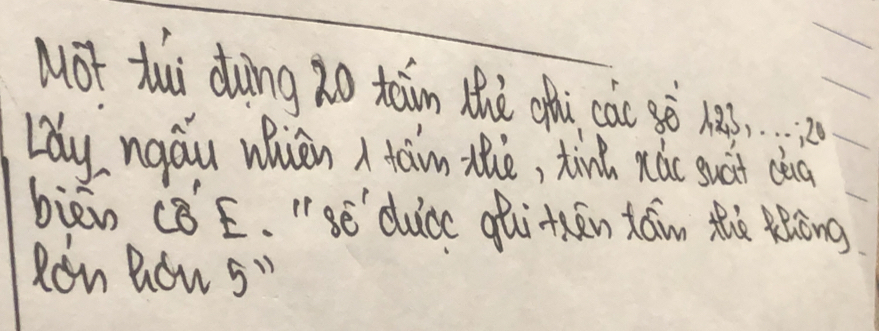 Một túi đựng 20 tấm thẻ ghi các số 1,2,3,....;20
Lấy ngẫu nhiên 1 tấm thẻ, tính xác suất của
biến cố E. "số được ghi trên tấm thẻ không
lớn hơn 5"